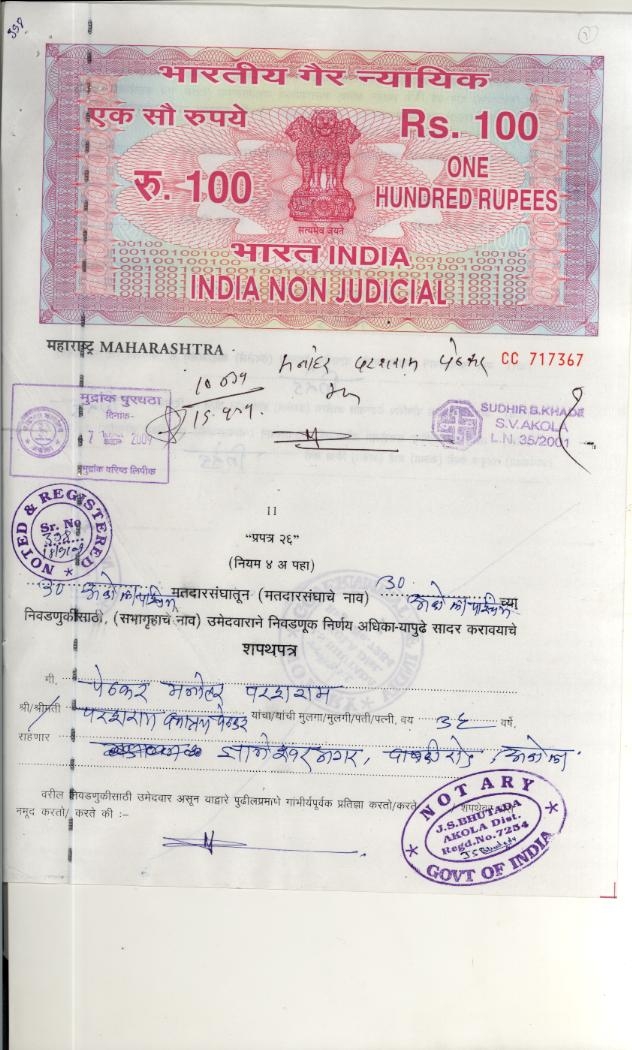 398
भारतीय गैर न्यायिक
एक सौ रुपये
Rs. 100
रु. 100
ONE
HUNDRED RUPEES
सत्यमेव जयते
भारत INDIA
INDIA NON JUDICIAL
महाराष्ट्र MAHARASHTRA
मनोहर परशराम पेठकर
CC 717367
मुद्रांक पुरवठा
दिनांक-
2009
मुद्रांक वरिष्ठ लिपीक
SUDHIR B.KHADE
S.V.AKOLA
L.N. 35/2001
NOTED & REGISTERED
Sr. No
398
11
"प्रपत्र २६"
(नियम ४ अ पहा)
30 अकोला पश्चिम मतदारसंघातून (मतदारसंघाचे नाव) 30 अकोला पश्चिम च्या
निवडणुकीसाठी, (सभागृहाचे नाव) उमेदवाराने निवडणूक निर्णय अधिका-यापुढे सादर करावयाचे
शपथपत्र
मी, पेठकर मनोहर परशराम
श्री/श्रीमती परशराम पेठकर यांचा/यांची मुलगा/मुलगी/पती/पत्नी, वय 36 वर्षे,
राहणार ज्ञानेश्वर नगर, डाबकी रोड, अकोला
वरील निवडणुकीसाठी उमेदवार असून याद्वारे पुढीलप्रमाणे गांभीर्यपूर्वक प्रतिज्ञा करतो/करते / शपथेवर
नमूद करतो/ करते की :–
NOTARY
J.S.BHUTADA
AKOLA Dist.
Regd.No.7254
GOVT OF INDIA